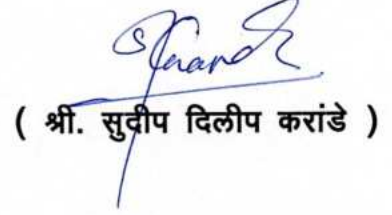 ( श्री. सुदीप दिलीप करांडे )